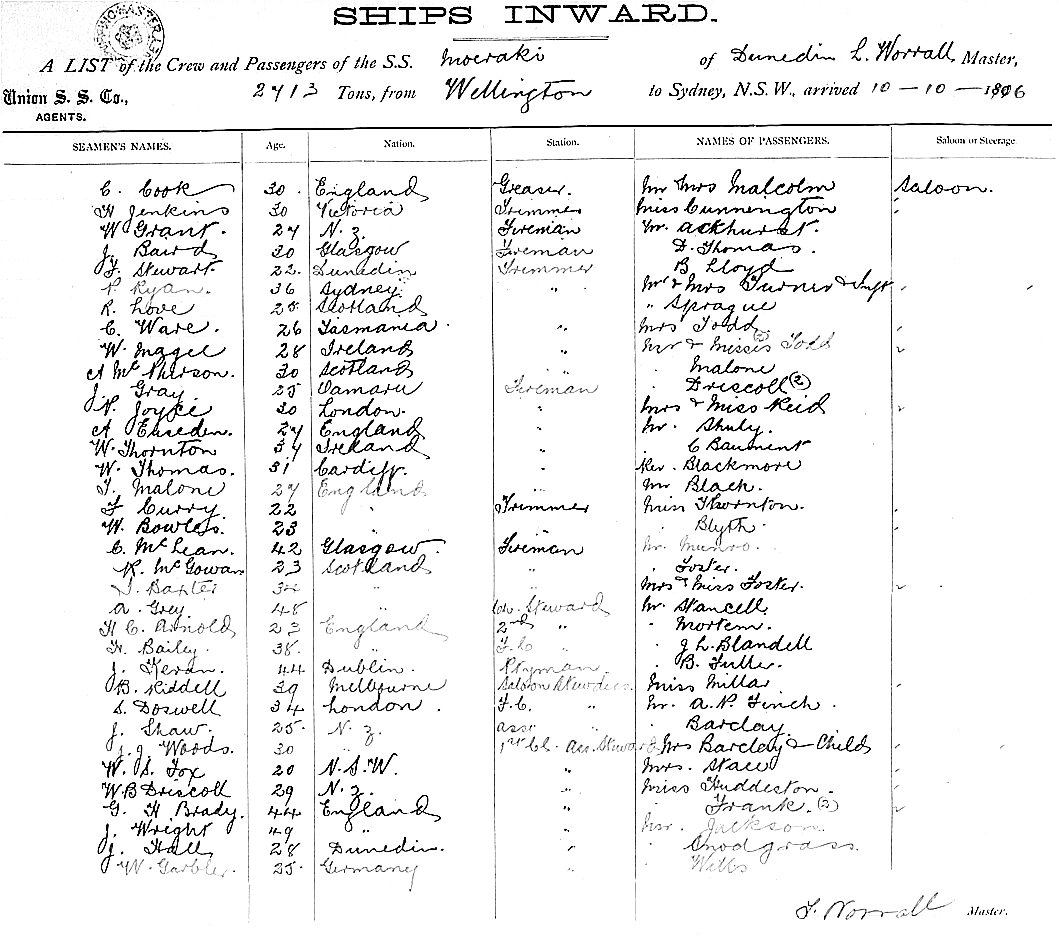 SHIPS INWARD.
A LIST of the Crew and Passengers of the S.S. Moeraki of Dunedin L. Worrall Master,
Union S. S. Co., 2713 Tons, from Wellington to Sydney, N.S.W., arrived 10 - 10 - 1906
AGENTS.
SEAMEN'S NAMES. Age. Nation. Station. NAMES OF PASSENGERS. Saloon or Steerage
C. Cook 30. England Greaser. Mr Mrs Malcolm Saloon.
H Jenkins 30 Victoria Trimmer Miss Cunnington "
W Grant. 27 N. Z. Fireman Mr. Ackhurst. "
J. Baird 30 Glasgow Fireman D. Thomas.
F. Stewart. 22. Dunedin Trimmer B Lloyd
P. Ryan. 36 Sydney. " Mr & Mrs Turner & Inft "
R. Love 28 Scotland " Sprague
C. Ware. 26 Tasmania. " Mrs Todd "
W. Magee 28 Ireland " Mr & Misses (2) Todd "
A McPherson. 30 Scotland " Malone
J. Gray. 25 Oamaru Fireman Driscoll (2)
P. Joyce 30 London. " Mrs & Miss Reid "
A 27 England " Mr.
W. Thornton 37 Ireland " C
W. Thomas. 31 Cardiff. " Rev. Blackmore
T. Malone 27 England " Mr Black.
F Curry. 22 " Trimmer Miss Thornton.
W. Bowles. 23 " " Blyth.
C. McLean. 42 Glasgow. Fireman Mr. Munro.
R. McGowan 23 Scotland " Foster.
Baxter 34 " " Mrs & Miss Foster. "
A. Grey 48 " Ch. Steward Mr. Stancell
H C. Arnold 23 England 2nd " Mortem.
H. Bailey. 38. " F. C. " J L. Blandell
J. Keran. 44 Dublin. P'tyman. B. Fuller.
B. Riddell 39 Melbourne Saloon Stewdess. Miss Millar
S. Doswell 34 London. F. C. " Mr. A. P. Finch.
J. Shaw. 25. N. Z. asst " Barclay.
J. J. Woods. 30 " 1st Cl. Ass. Steward Mrs Barclay & Child "
W. S. Fox 20 N. S. W. " Mrs. Stace "
W B Driscoll 29 N. Z. " Miss Huddeston. "
G. H. Brady. 44 England " Frank. (2) "
J. Wright 49 " " Mr. Jackson
J. Hall 28 Dunedin. " Snodgrass.
W. Garbler. 25. Germany " Wills
Worrall Master.